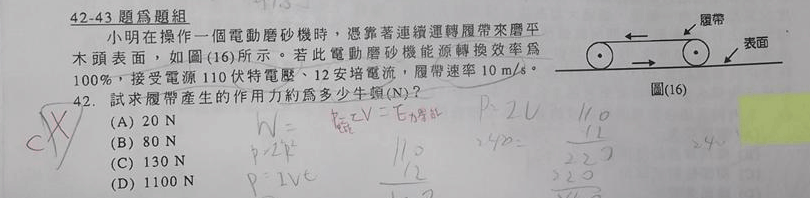 42-43 題為題組
小明在操作一個電動磨砂機時，憑靠著連續運轉履帶來磨平
木頭表面，如圖(16)所示。若此電動磨砂機能源轉換效率為
100%，接受電源 110 伏特電壓、12 安培電流，履帶速率 10 m/s。
42. 試求履帶產生的作用力約為多少牛頓(N)？
(A) 20 N
(B) 80 N
(C) 130 N
(D) 1100 N
履帶
表面
圖(16)
C
W=
P=IVt
110
12
220
110
12